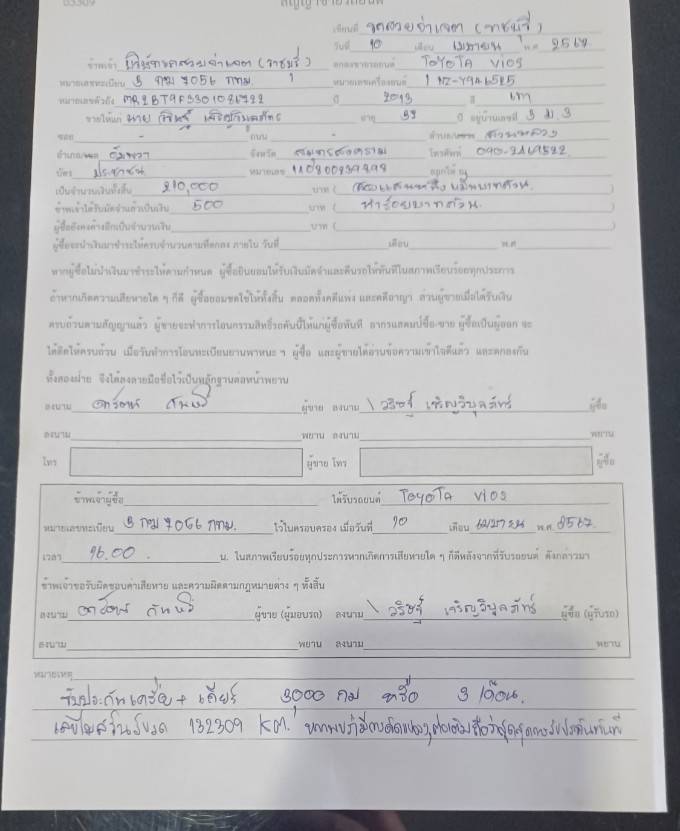 03309
เขียนที่
วันที่ 10 เดือน เมษายน พ.ศ. 2567
ข้าพเจ้า ขอขายรถยนต์ TOYOTA VIOS
หมายเลขทะเบียน 3 กฌ 7056 กทม. หมายเลขเครื่องยนต์ 1NZ-Y946585
หมายเลขตัวถัง ปี 2013 สี เทา
ขายให้แก่ นาย อายุ ปี อยู่บ้านเลขที่
ซอย - ถนน - ตำบล/แขวง สวนหลวง
อำเภอ/เขต อัมพวา จังหวัด สมุทรสงคราม โทรศัพท์
บัตร ประชาชน หมายเลข ออกให้ ณ
เป็นจำนวนเงินทั้งสิ้น 210,000 บาท ( สองแสนหนึ่งหมื่นบาทถ้วน. )
ข้าพเจ้าได้รับมัดจำแล้วเป็นเงิน 500 บาท ( ห้าร้อยบาทถ้วน. )
ผู้ซื้อยังคงค้างอีกเป็นจำนวนเงิน บาท ( )
ผู้ซื้อจะนำเงินมาชำระให้ครบจำนวนตามที่ตกลง ภายใน วันที่ เดือน พ.ศ.
หากผู้ซื้อไม่นำเงินมาชำระให้ตามกำหนด ผู้ซื้อยินยอมให้ริบเงินมัดจำและคืนรถให้ทันทีในสภาพเรียบร้อยทุกประการ
ถ้าหากเกิดความเสียหายใด ๆ ก็ดี ผู้ซื้อยอมชดใช้ให้ทั้งสิ้น ตลอดทั้งคดีแพ่ง และคดีอาญา ส่วนผู้ขายเมื่อได้รับเงิน
ครบถ้วนตามสัญญาแล้ว ผู้ขายจะทำการโอนกรรมสิทธิ์รถคันนี้ให้แก่ผู้ซื้อทันที อากรแสตมป์ซื้อ-ขาย ผู้ซื้อเป็นผู้ออก จะ
ได้คิดให้ครบถ้วน เมื่อวันทำการโอนทะเบียนยานพาหนะ ฯ ผู้ซื้อ และผู้ขายได้อ่านข้อความเข้าใจดีแล้ว และตกลงกัน
ทั้งสองฝ่าย จึงได้ลงลายมือชื่อไว้เป็นหลักฐานต่อหน้าพยาน
ลงนาม ผู้ขาย ลงนาม ผู้ซื้อ
ลงนาม พยาน ลงนาม พยาน
โทร ผู้ขาย โทร ผู้ซื้อ
ข้าพเจ้าผู้ซื้อ ได้รับรถยนต์ TOYOTA VIOS
หมายเลขทะเบียน 3 กฌ 7056 กทม. ไปในครอบครอง เมื่อวันที่ 10 เดือน เมษายน พ.ศ. 2567
เวลา 16.00 น. ในสภาพเรียบร้อยทุกประการหากเกิดการเสียหายใด ๆ ก็ดีหลังจากที่รับรถยนต์ ดังกล่าวมา
ข้าพเจ้าขอรับผิดชอบค่าเสียหาย และความผิดตามกฎหมายต่าง ๆ ทั้งสิ้น
ลงนาม ผู้ขาย (ผู้มอบรถ) ลงนาม ผู้ซื้อ (ผู้รับรถ)
ลงนาม พยาน ลงนาม พยาน
หมายเหตุ
รับประกันเครื่อง + เกียร์ 3000 กม หรือ 3 เดือน.
เลขไมล์วันรับรถ 132309 KM. หากพบว่ามีการดัดแปลง,ต่อเติม ถือว่าสิ้นสุดการรับประกันทันที